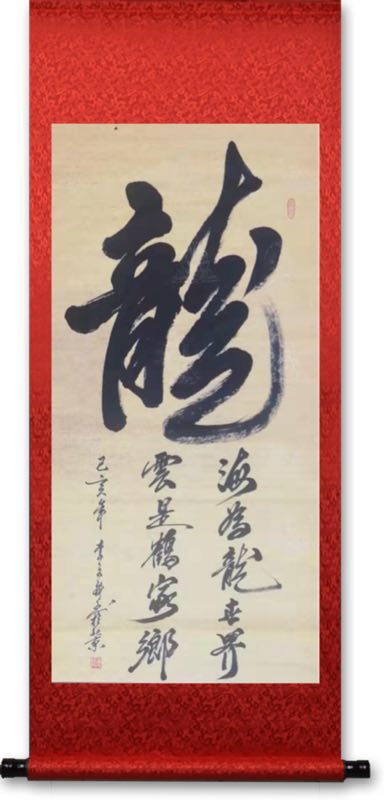 龍
海為龍世界
雲是鶴家鄉
己亥年 李